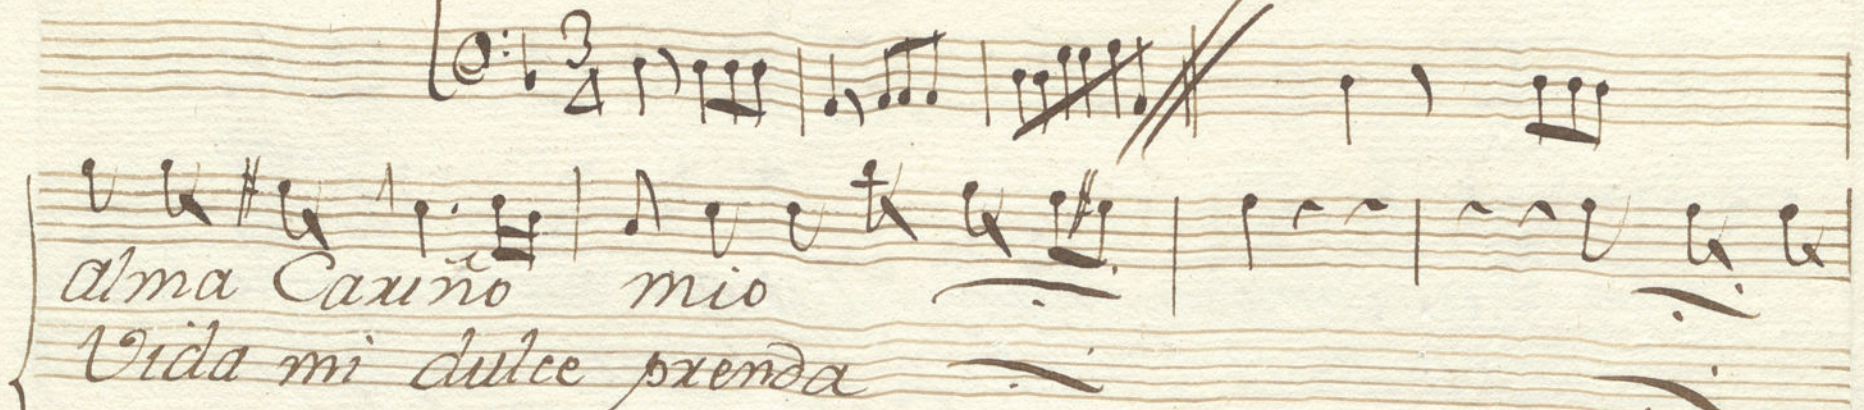 3
4
Alma Cariño mio
Vida mi dulce prenda